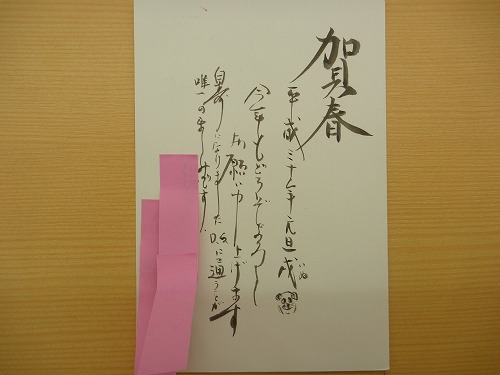 賀春
平成三十年元旦 戌 いぬ
今年もどうぞよろしく
お願い申し上げます
身寿になりました D.S.に通うことが
唯一の楽しみです!